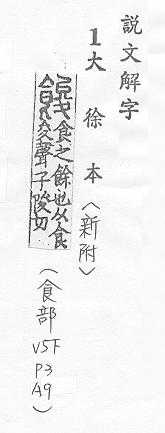 說文解字
1大徐本〈新附〉
餕食之餘也从食
夋聲子陖切
(食部V5F P3 A9)